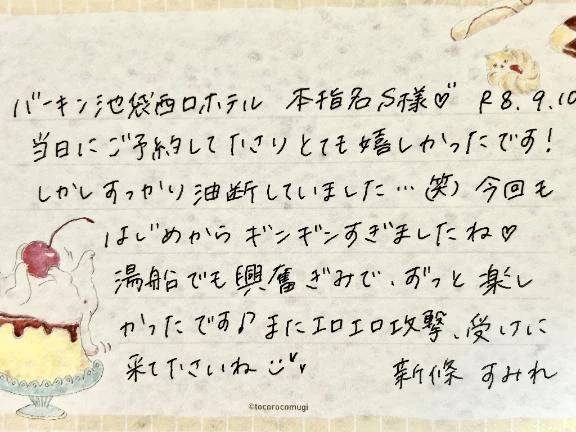 バーキン池袋西口ホテル 本指名S様♡ R8.9.10
当日にご予約して下さりとても嬉しかったです!
しかしすっかり油断していました…(笑)今回も
はじめからギンギンすぎましたね♡
湯船でも興奮ぎみで、ずっと楽し
かったです♪またエロエロ攻撃、受けに
来て下さいね
新條 すみれ
©tocorocomugi